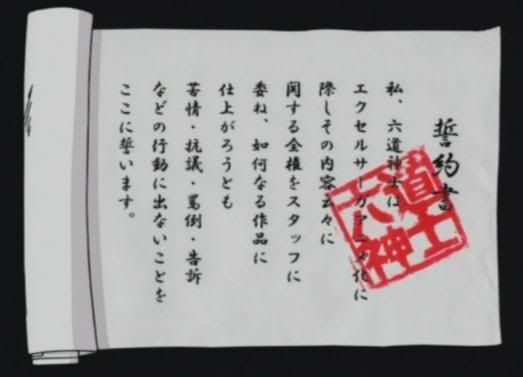 誓約書
私、六道神士は
エクセルサーガアニメ化に
際しその内容云々に
関する全権をスタッフに
委ね、如何なる作品に
仕上がろうとも
苦情・抗議・罵倒・告訴
などの行動に出ないことを
ここに誓います。
六道神士